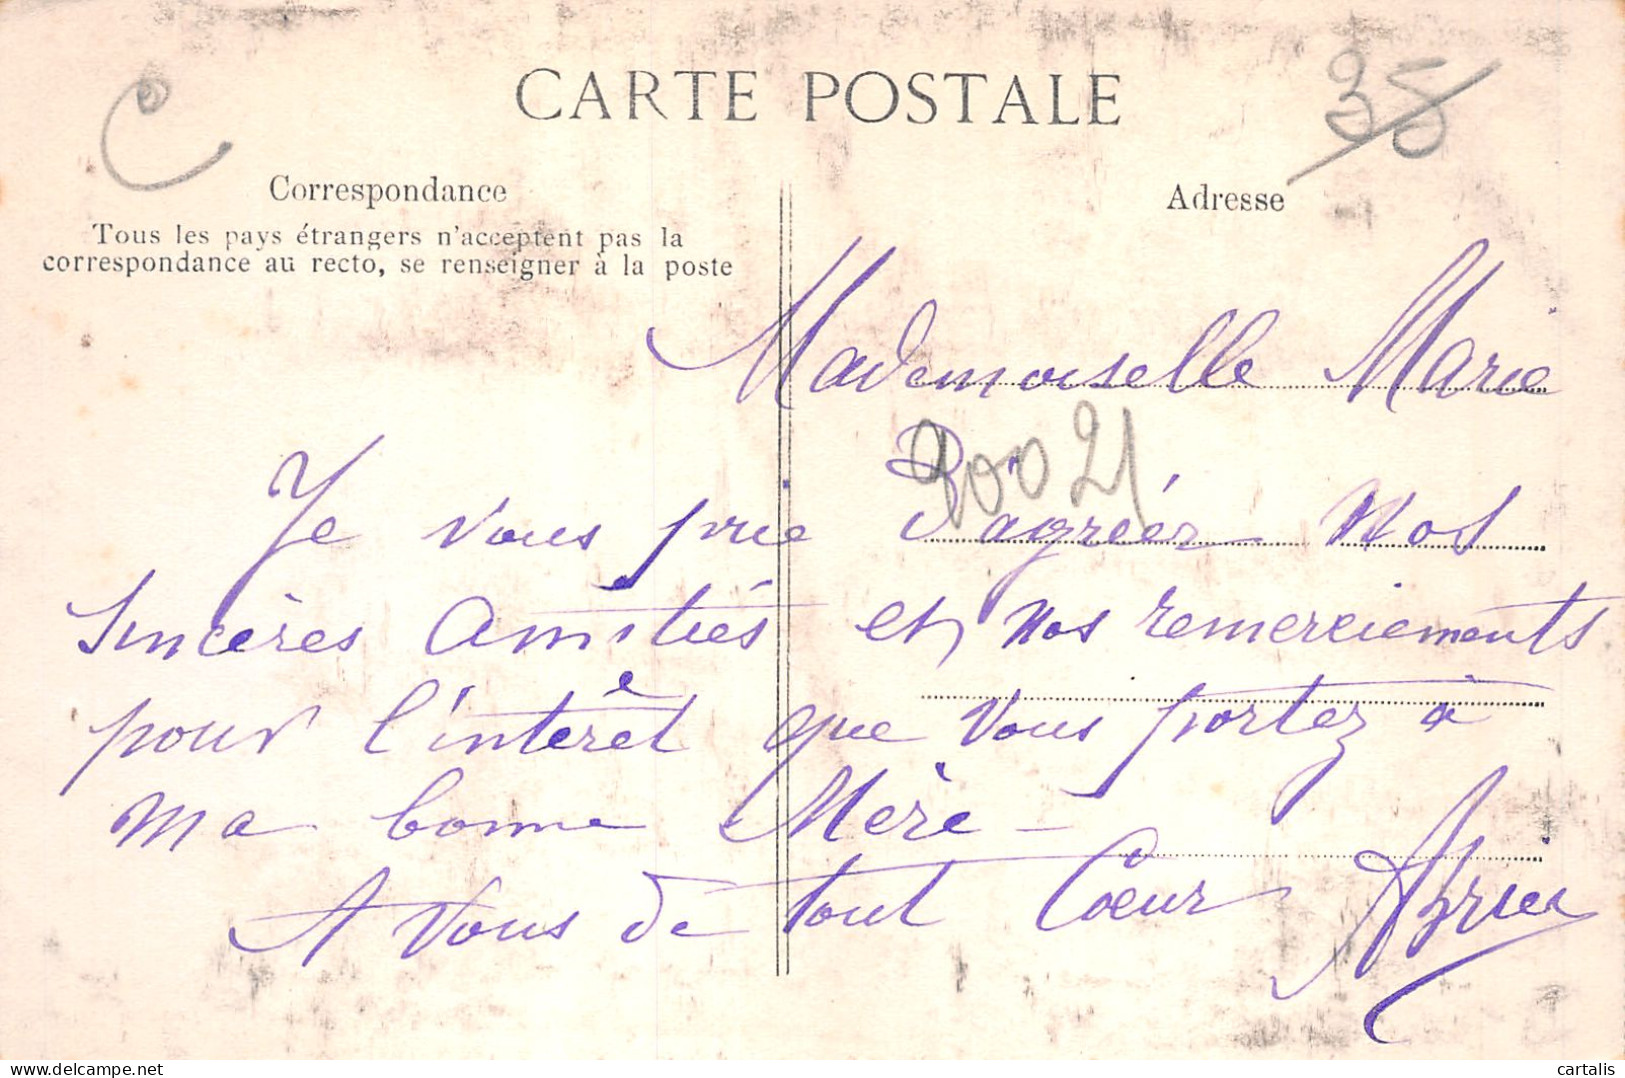 CARTE POSTALE
35
Correspondance
Adresse
Tous les pays étrangers n'acceptent pas la
correspondance au recto, se renseigner à la poste
Mademoiselle Marie
90021
Je vous prie d'agréer nos
Sincères amitiés et nos remerciements
pour l'intérêt que vous portez à
ma bonne Mère —
A vous de tout Coeur
delcampe.net
cartalis